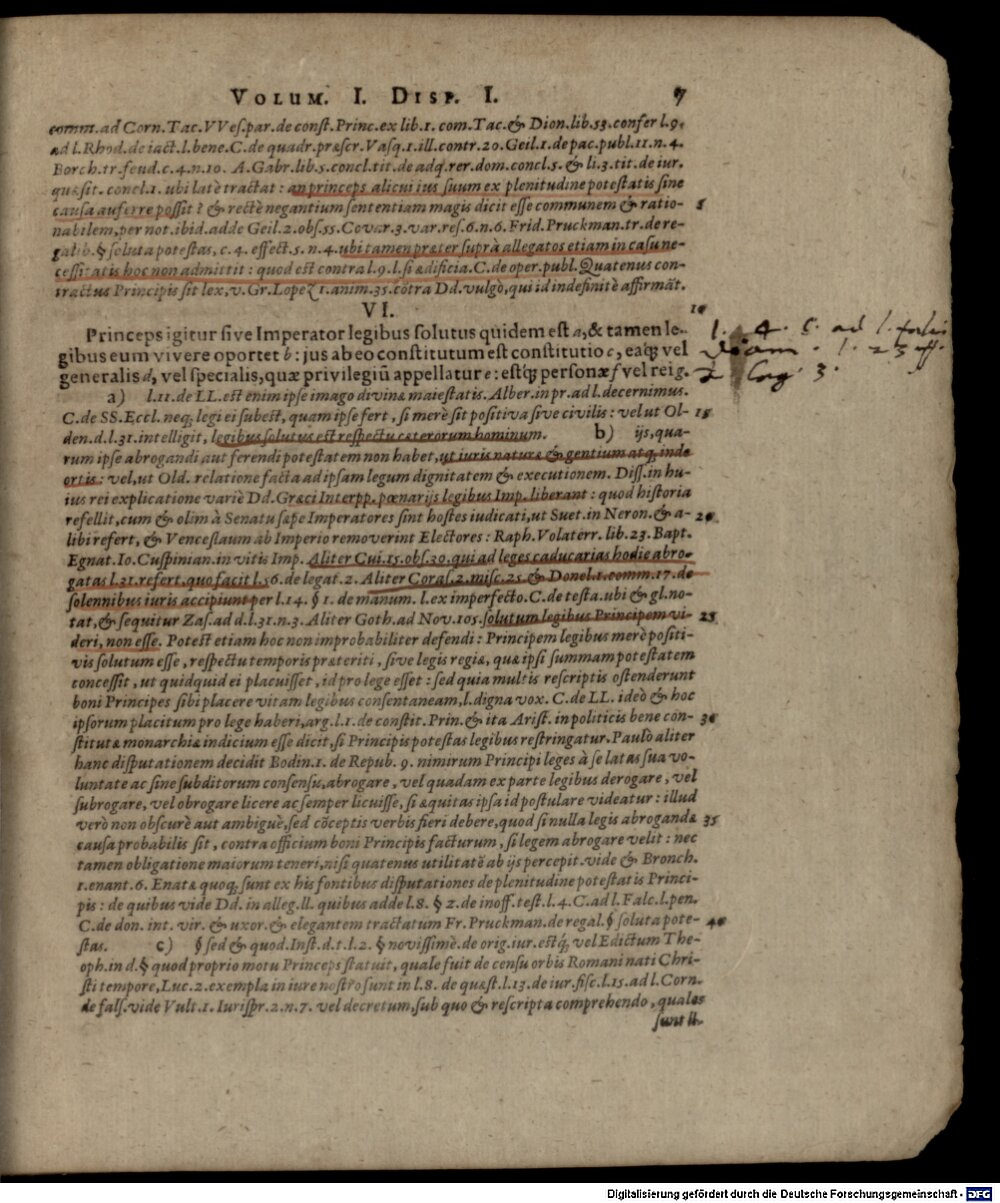 VOLUM. I. DISP. I. 7
comm. ad Corn. Tac. VVes. par. de const. Princ. ex lib. 1. com. Tac. & Dion. lib. 53. confer l. 9.
ad l. Rhod. de iact. l. bene. C. de quadr. præscr. Vasq. 1. ill. contr. 20. Geil. 1. de pac. publ. 11. n. 4.
Borch. tr. feud. c. 4. n. 10. A. Gabr. lib. 5. concl. tit. de adq. rer. dom. concl. 5. & li. 3. tit. de iur.
quæsit. concl. 1. ubi latè tractat : an princeps alicui ius suum ex plenitudine potestatis sine
causa auferre possit ? & rectè negantium sententiam magis dicit esse communem & ratio- 5
nabilem, per not. ibid. adde Geil. 2. obs. 55. Covar. 3. var. res. 6. n. 6. Frid. Pruckman. tr. de re-
galib. § soluta potestas, c. 4. effect. 5. n. 4. ubi tamen præter suprà allegatos etiam in casu ne-
cessitatis hoc non admittit : quod est contra l. 9. l. si ædificia. C. de oper. publ. Quatenus con-
tractus Principis sit lex, v. Gr. Lopez 1. anim. 35. cōtra Dd. vulgò, qui id indefinitè affirmāt.
VI. 10
Princeps igitur sive Imperator legibus solutus quidem est a, & tamen le-
gibus eum vivere oportet b : jus ab eo constitutum est constitutio c, eaq́; vel
generalis d, vel specialis, quæ privilegiū appellatur e : estq́; personæ f vel rei g.
l. 4. C. ad l.
l. 23 ff.
3.
a) l. 11. de LL. est enim ipse imago divinæ maiestatis. Alber. in pr. ad l. decernimus.
C. de SS. Eccl. neq; legi ei subest, quam ipse fert, si merè sit positiva sive civilis : vel ut Ol- 15
den. d. l. 31. intelligit, legibus solutus est respectu cæterorum hominum. b) ijs, qua-
rum ipse abrogandi aut ferendi potestatem non habet, ut iuris naturæ & gentium atq; inde
ortis : vel, ut Old. relatione facta ad ipsam legum dignitatem & executionem. Diss. in hu-
ius rei explicatione variè Dd. Græci Interpp. pœnarijs legibus Imp. liberant : quod historia
refellit, cum & olim à Senatu sæpe Imperatores sint hostes iudicati, ut Suet. in Neron. & a- 20
libi refert, & Venceslaum ab Imperio removerint Electores : Raph. Volaterr. lib. 23. Bapt.
Egnat. Io. Cuspinian. in vitis Imp. Aliter Cui. 15. obs. 30. qui ad leges caducarias hodie abro-
gatas l. 31. refert, quo facit l. 56. de legat. 2. Aliter Coras. 2. misc. 25 & Donel. 1. comm. 17. de
solennibus iuris accipiunt per l. 14. § 1. de manum. l. ex imperfecto. C. de testa. ubi & gl. no-
tat, & sequitur Zas. ad d. l. 31. n. 3. Aliter Goth. ad Nov. 105. solutum legibus Principem vi- 25
deri, non esse. Potest etiam hoc non improbabiliter defendi : Principem legibus merè positi-
vis solutum esse, respectu temporis præteriti, sive legis regiæ, quæ ipsi summam potestatem
concessit, ut quidquid ei placuisset, id pro lege esset : sed quia multis rescriptis ostenderunt
boni Principes sibi placere vitam legibus consentaneam, l. digna vox. C. de LL. ideò & hoc
ipsorum placitum pro lege haberi, arg. l. 1. de constit. Prin. & ita Arist. in politicis bene con- 30
stitutæ monarchiæ indicium esse dicit, si Principis potestas legibus restringatur. Paulò aliter
hanc disputationem decidit Bodin. 1. de Repub. 9. nimirum Principi leges à se latas sua vo-
luntate ac sine subditorum consensu, abrogare, vel quadam ex parte legibus derogare, vel
subrogare, vel obrogare licere ac semper licuisse, si æquitas ipsa id postulare videatur : illud
verò non obscurè aut ambiguè, sed cōceptis verbis fieri debere, quod si nulla legis abrogandæ 35
causa probabilis sit, contra officium boni Principis facturum, si legem abrogare velit : nec
tamen obligatione maiorum teneri, nisi quatenus utilitatē ab ijs percepit. vide & Bronch.
1. enant. 6. Enatæ quoq; sunt ex his fontibus disputationes de plenitudine potestatis Princi-
pis : de quibus vide Dd. in alleg. ll. quibus adde l. 8. § 2. de inoff. test. l. 4. C. ad l. Falc. l. pen.
C. de don. int. vir. & uxor. & elegantem tractatum Fr. Pruckman. de regal. § soluta pote- 40
stas. c) § sed & quod. Inst. d. t. l. 2. § novissimè. de orig. iur. estq́; vel Edictum The-
oph. in d. § quod proprio motu Princeps statuit, quale fuit de censu orbis Romani nati Chri-
sti tempore, Luc. 2. exempla in iure nostro sunt in l. 8. de quæst. l. 13. de iur. fisc. l. 15. ad l. Corn.
de fals. vide Vult. 1. Iurispr. 2. n. 7. vel decretum, sub quo & rescripta comprehendo, quales
sunt ll.
Digitalisierung gefördert durch die Deutsche Forschungsgemeinschaft - DFG